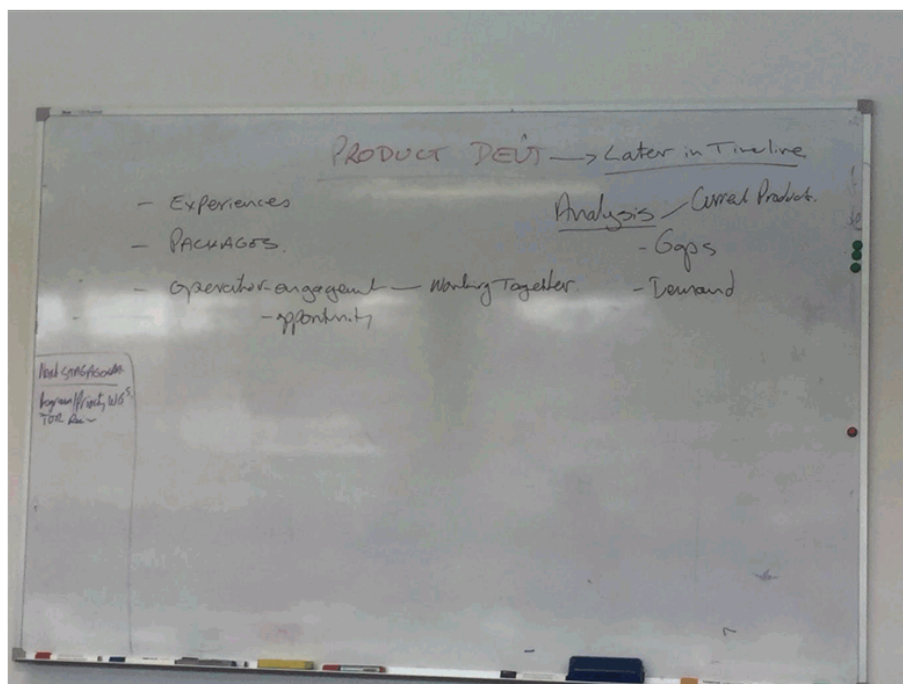 PRODUCT DEV'T → Later in Timeline
- Experiences
- PACKAGES.
- Operator engagement — Working Together.
- opportunity
Analysis / Current Product.
- Gaps
- Demand
Next
Program/Priority WG's
TOR